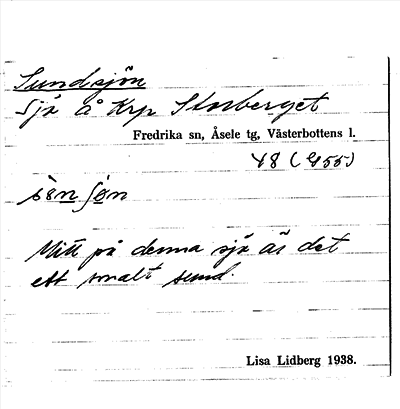 Sundsjön
Sjö å Krp Storberget
Fredrika sn, Åsele tg, Västerbottens l.
48 (455)
Mitt på denna sjö är det
ett smalt sund.
Lisa Lidberg 1938.